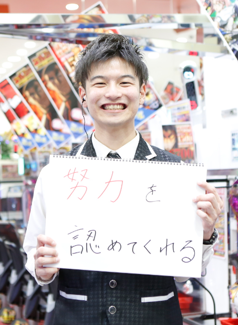 努力を
認めてくれる